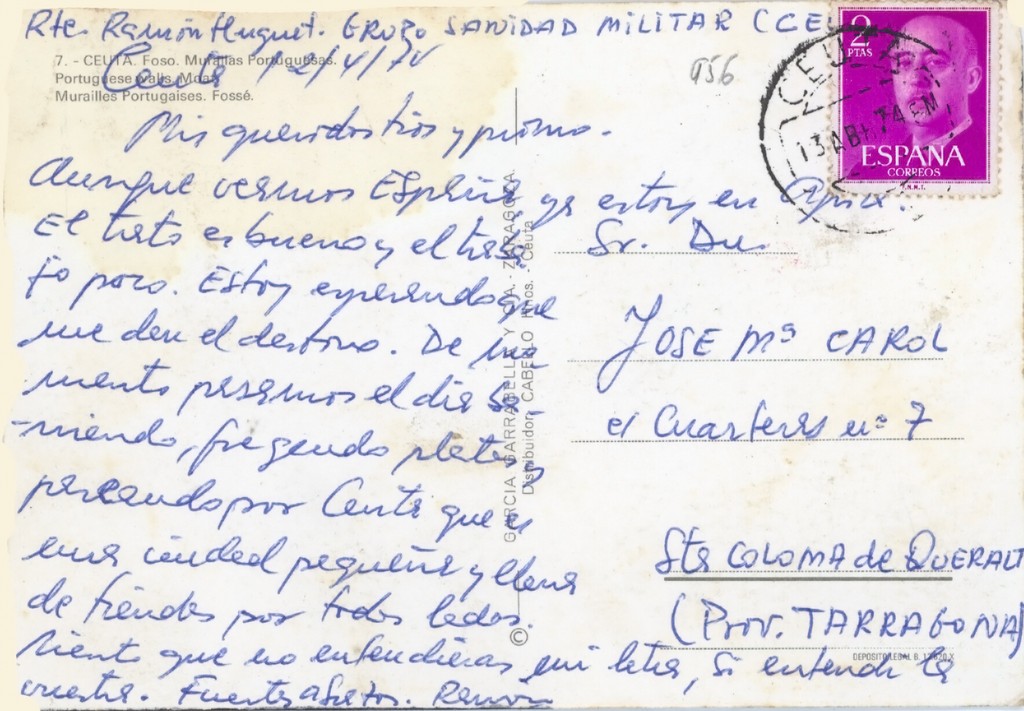 Rte. Ramón Huguet. GRUPO SANIDAD MILITAR (CEU
7. - CEUTA. Foso. Murallas Portuguesas.
Portuguese walls. Moat.
Murailles Portugaises. Fossé.
Ceuta 12/4/74
956
2
PTAS
ESPAÑA
CORREOS
F.N.M.T.
CEUTA
13 ABR 74
Mis queridos tios y primo.
Aunque veamos España ya estoy en Africa.
El trato es bueno y el traba-
jo poco. Estoy esperando que
me den el destino. De mo-
mento pasamos el dia
fregando platos y
paseando por Ceuta que es
una ciudad pequeña y llena
de tiendas por todos lados.
Siento que no entendieras mi letra, si entendi la
vuestra. Fuertes abrazos. Ramon
GARCIA GARRABELLA Y CIA. - ZARAGOZA
Distribuidor: CABELLO Hnos. Ceuta
©
Sr. Dn.
JOSE Mª CAROL
c/ Cuarteras nº 7
Sta COLOMA de QUERALT
(Prov. TARRAGONA)
DEPOSITO LEGAL B.